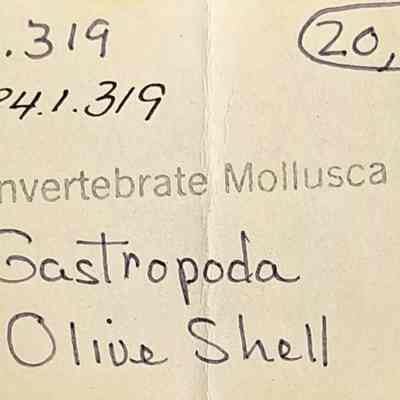 .319 20,
94.1.319
nvertebrate Mollusca
Gastropoda
Olive Shell